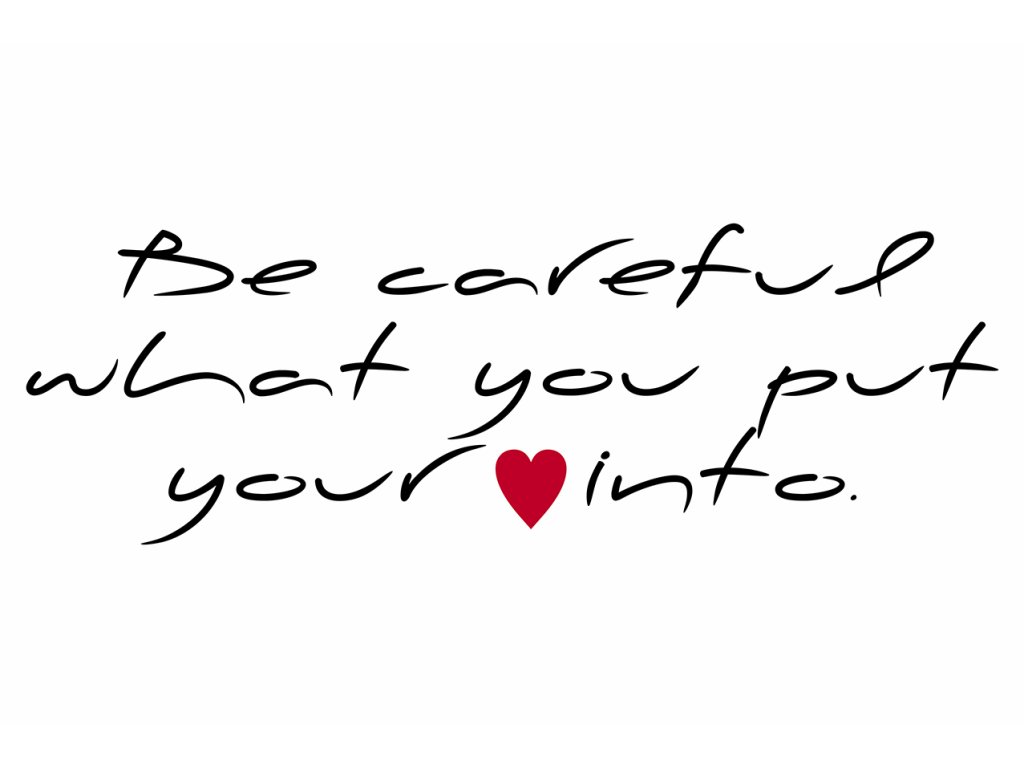 Be careful
what you put
your ♥ into.